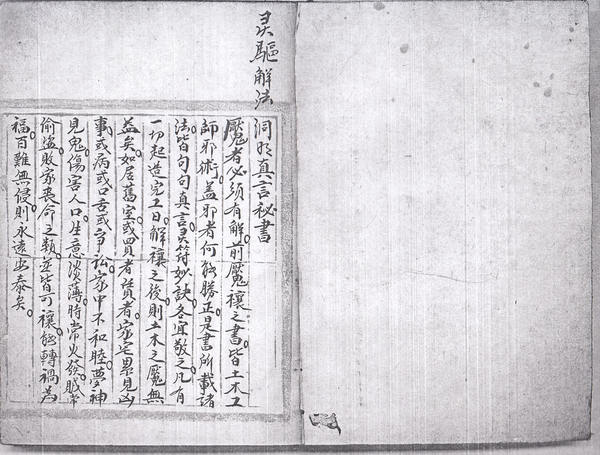 灵驅解法
洞玄真言秘書
魘者必須有解前魘禳之書皆土木工
師邪術盖邪者何能勝正是書所載諸
法皆句句真言灵符妙訣各宜敬之凡有
一切起造完工日解禳之後則土木之魘無
益矣如居舊室或買者赁者家宅累見凶
事或病或口舌或争訟家中不和睦夢神
見鬼傷害人口生意淡薄時常火發賊常
偷盗敗家丧命之類並皆可禳能轉禍為
福百難無侵則永遠安泰矣